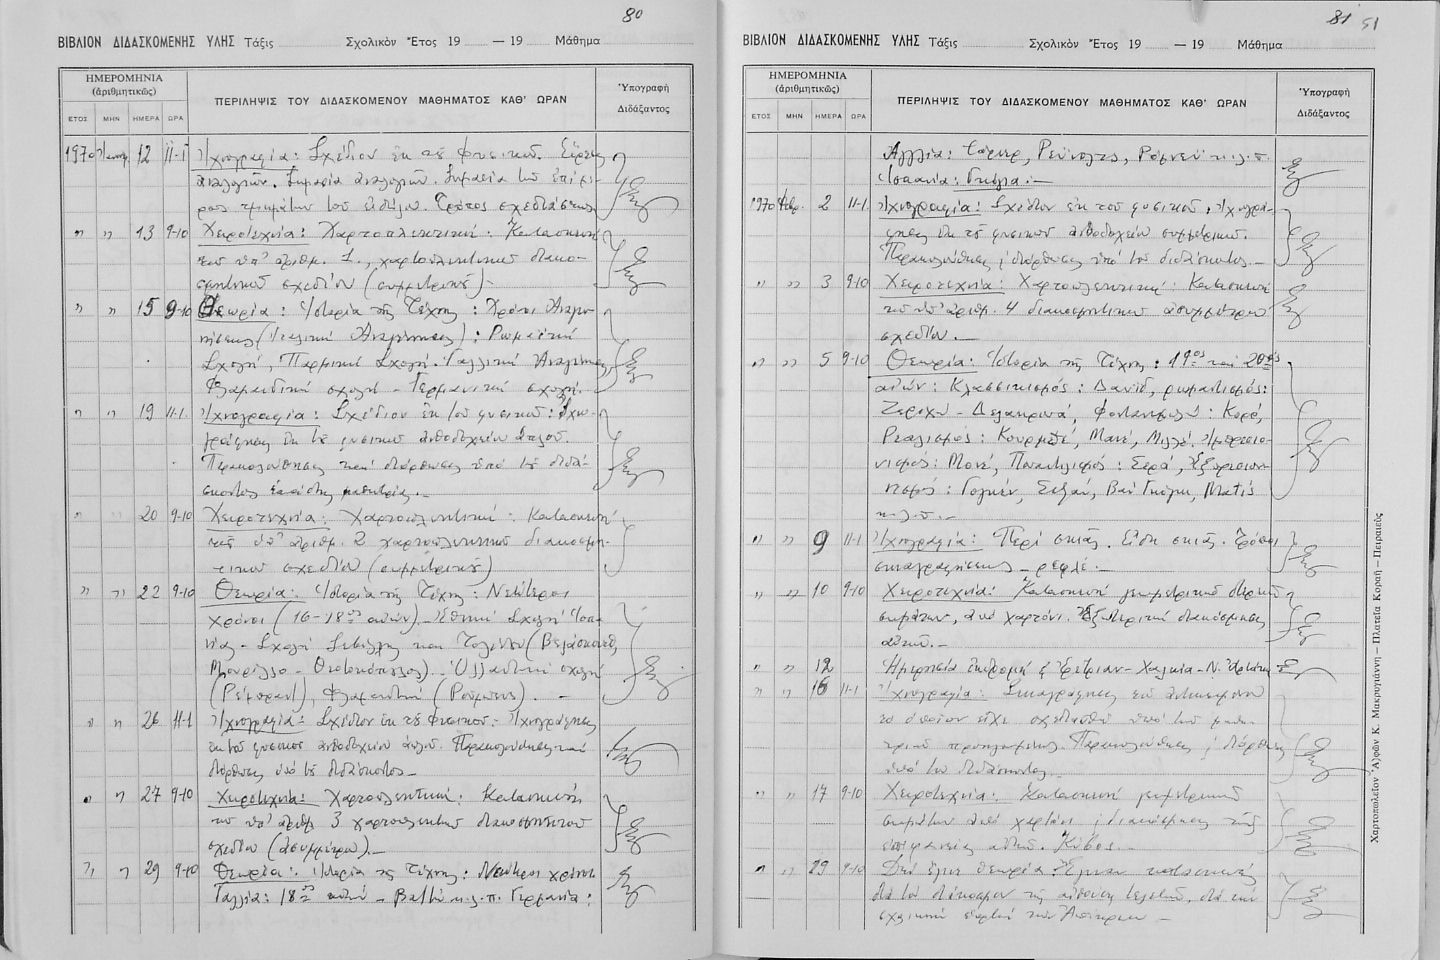 80
ΒΙΒΛΙΟΝ ΔΙΔΑΣΚΟΜΕΝΗΣ ΥΛΗΣ Τάξις Σχολικὸν Ἔτος 19 — 19 Μάθημα
ΗΜΕΡΟΜΗΝΙΑ
(ἀριθμητικῶς)
ΕΤΟΣ ΜΗΝ ΗΜΕΡΑ ΩΡΑ
ΠΕΡΙΛΗΨΙΣ ΤΟΥ ΔΙΔΑΣΚΟΜΕΝΟΥ ΜΑΘΗΜΑΤΟΣ ΚΑΘ' ΩΡΑΝ
Ὑπογραφὴ
Διδάξαντος
1970 12 11-1 Ἰχνογραφία: Σχέδιον ἐκ τοῦ φυσικοῦ. Εὕρεσις
ἀναλογιῶν. Σημασία ἀναλογιῶν. Σημασία τῶν ἐπιμέ-
ρους τμημάτων τοῦ εἰδώλου. Τρόπος σχεδιάσεως
" " 13 9-10 Χειροτεχνία: Χαρτοπλεκτική: Κατασκευή
τοῦ ὑπ' ἀριθμ. 1., χαρτοπλεκτικοῦ διακο-
σμητικοῦ σχεδίου (συμμετρικοῦ)-
" " 15 9-10 Θεωρία: Ἱστορία τῆς Τέχνης: Χρόνοι Ἀναγεν-
νήσεως (Ἰταλική Ἀναγέννησις): Ρωμαϊκή
Σχολή, Παρμική Σχολή. Γαλλική Ἀναγέννησις
Φλαμανδική σχολή - Γερμανική σχολή.-
" " 19 11-1. Ἰχνογραφία: Σχέδιον ἐκ τοῦ φυσικοῦ: Ἰχνο-
γράφησις ἐκ τοῦ φυσικοῦ ἀνθοδοχείου ἁπλοῦ.
Παρακολούθησις καί διόρθωσις ὑπό τοῦ διδά-
σκοντος ἑκάστης μαθητρίας.-
" 20 9-10 Χειροτεχνία: Χαρτοπλεκτική: Κατασκευή
τοῦ ὑπ' ἀριθμ. 2 χαρτοπλεκτικοῦ διακοσμη-
τικοῦ σχεδίου (συμμετρικοῦ)
" " 22 9-10 Θεωρία: Ἱστορία τῆς Τέχνης: Νεώτεροι
χρόνοι (16-18ος αἰών)- Ἐθνική Σχολή Ἱσπα-
νίας - Σχολή Σεβίλλης καί Τολέδου (Βελάσκουεθ,
Μουρίλλο - Θεοτοκόπουλος). Ὁλλανδική σχολή
(Ρέμπραντ), Φλαμανδική (Ρούμπενς). -
" " 26 11-1 Ἰχνογραφία: Σχέδιον ἐκ τοῦ Φυσικοῦ: Ἰχνογράφησις
ἐκ τοῦ φυσικοῦ ἀνθοδοχείου ἁπλοῦ. Παρακολούθησις καί
διόρθωσις ὑπό τοῦ διδάσκοντος-
" " 27 9-10 Χειροτεχνία: Χαρτοπλεκτική: Κατασκευή
τοῦ ὑπ' ἀριθμ 3 χαρτοπλεκτικοῦ διακοσμητικοῦ
σχεδίου (ἀσυμμέτρου).-
" " 29 9-10 Θεωρία: Ἱστορία τῆς Τέχνης: Νεώτεροι χρόνοι
Γαλλία: 18ος αἰών - Βαττώ κ.λ.π. Γερμανία:
81 51
ΒΙΒΛΙΟΝ ΔΙΔΑΣΚΟΜΕΝΗΣ ΥΛΗΣ Τάξις Σχολικὸν Ἔτος 19 — 19 Μάθημα
ΗΜΕΡΟΜΗΝΙΑ
(ἀριθμητικῶς)
ΕΤΟΣ ΜΗΝ ΗΜΕΡΑ ΩΡΑ
ΠΕΡΙΛΗΨΙΣ ΤΟΥ ΔΙΔΑΣΚΟΜΕΝΟΥ ΜΑΘΗΜΑΤΟΣ ΚΑΘ' ΩΡΑΝ
Ὑπογραφὴ
Διδάξαντος
Ἀγγλία: Τάρνερ, Ρέϋνολτς, Ρόμνεϋ κ.λ.π.
Ἱσπανία: Γκόγια.-
1970 Φεβρ. 2 11-1 Ἰχνογραφία: Σχέδιον ἐκ τοῦ φυσικοῦ, Ἰχνογρά-
φησις ἐκ τοῦ φυσικοῦ ἀνθοδοχείου συμμετρικοῦ.
Παρακολούθησις, διόρθωσις ὑπό τοῦ διδάσκοντος.-
" " 3 9-10 Χειροτεχνία: Χαρτοπλεκτική: Κατασκευή
τοῦ ὑπ' ἀριθμ. 4 διακοσμητικοῦ ἀσυμμέτρου
σχεδίου.-
" " 5 9-10 Θεωρία: Ἱστορία τῆς Τέχνης: 19ος καί 20ος
αἰών: Κλασσικισμός: Δαυίδ, ρωμαντισμός:
Ζερικώ - Δελακρουά, Φονταινεμπλώ: Κορό,
Ρεαλισμός: Κουρμπέ, Μανέ, Μιλλέ. Ἰμπρεσιο-
νισμός: Μονέ, Πουαντιλισμός: Σερά, Ἐξπρεσιον-
ισμός: Γογκέν, Σεζάν, Βαν Γκόγκ, Ματίς
κ.λ.π.-
" " 9 11-1 Ἰχνογραφία: Περί σκιᾶς. Εἴδη σκιᾶς. Τρόποι
σκιαγραφήσεως - ρεφλέ.-
" " 10 9-10 Χειροτεχνία: Κατασκευή γεωμετρικοῦ στερεοῦ
σώματος, ἀπό χαρτόνι. Ἐξωτερική διακόσμησις
αὐτοῦ.-
" " 12 Ἡμερησία ἐκδρομή Ἐρέτριαν - Χαλκίδα - Ν. Ἀρτάκη
" " 16 11-1 Ἰχνογραφία: Σκιαγράφησις τοῦ ἀντικειμένου
τό ὁποῖον εἶχε σχεδιασθῆ ὑπό τῶν μαθη-
τριῶν προηγουμένως. Παρακολούθησις, διόρθωσις
ὑπό τοῦ διδάσκοντος.
" " 17 9-10 Χειροτεχνία: Κατασκευή γεωμετρικοῦ
σώματος ἀπό χαρτόνι, διακόσμησις τῆς
ἐπιφανείας αὐτοῦ. Κύβος.-
" " 19 9-10 Δέν ἔγινε θεωρία. Ἔγιναν κατασκευές
διά τόν διάκοσμον τῆς αἰθούσης τελετῶν, διά τήν
σχολικήν ἑορτήν τῶν Ἀπόκρεων -
Χαρτοπωλεῖον Ἀφῶν Κ. Μακρυγιάννη — Πλατεῖα Κοραῆ — Πειραιεὺς